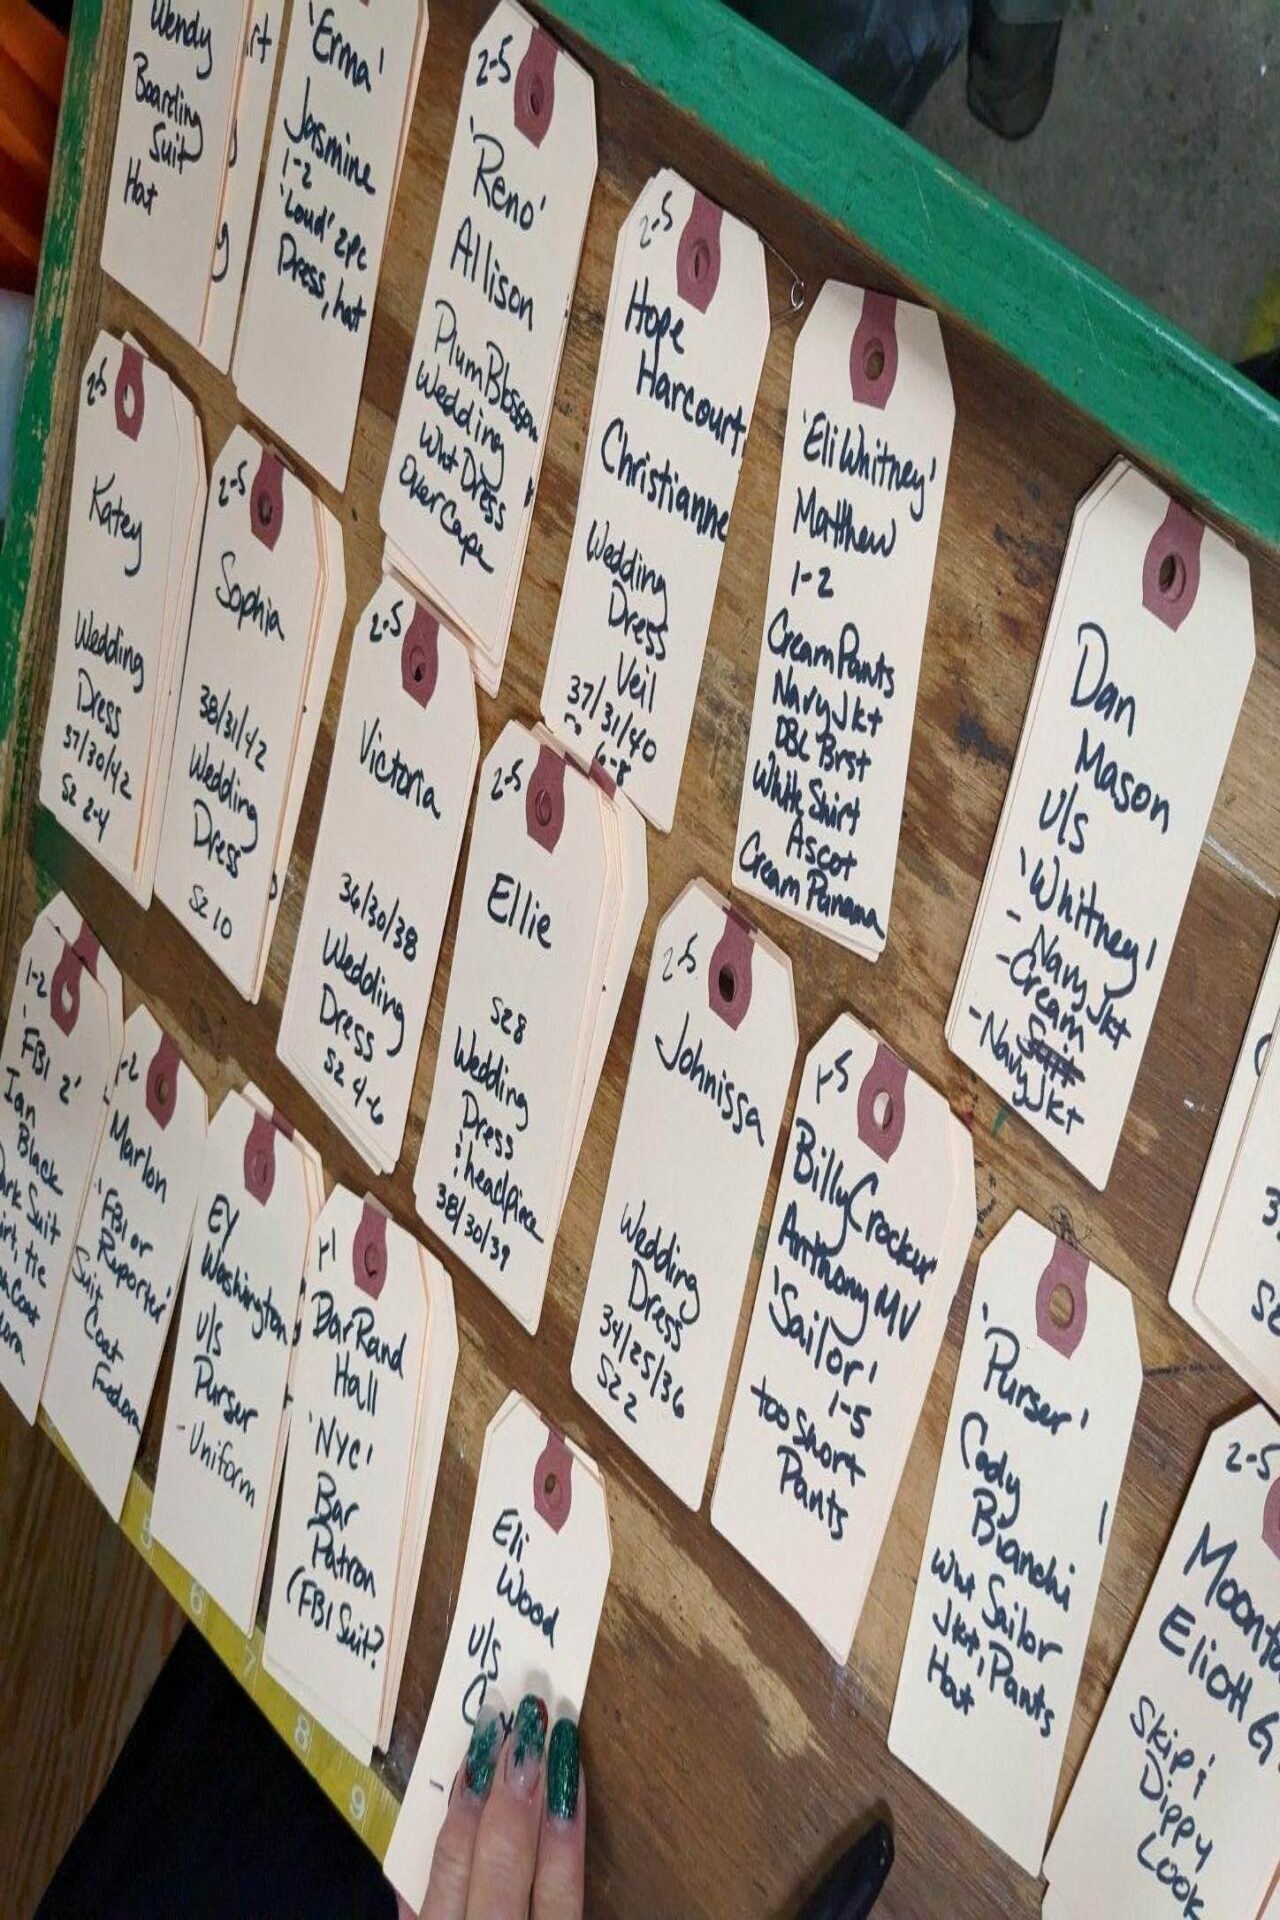 Wendy
Boarding
Suit
Hat
'Erma'
Jasmine
1-2
'Loud' 2pc
Dress, hat
2-5
'Reno'
Allison
Plum Blossom
Wedding
Wht Dress
Over Cape
2-5
Hope
Harcourt
Christianne
Wedding
Dress
Veil
37/31/40
6-8
'Eli Whitney'
Matthew
1-2
Cream Pants
Navy Jkt
DBL Brst
White Shirt
Ascot
Cream Panama
Dan
Mason
U/S
'Whitney'
- Navy Jkt
- Cream
Suit
- Navy Jkt
2-5
Katey
Wedding
Dress
37/30/42
SZ 2-4
2-5
Sophia
38/31/42
Wedding
Dress
SZ 10
2-5
Victoria
36/30/38
Wedding
Dress
SZ 4-6
2-5
Ellie
SZ 8
Wedding
Dress
& headpiece
38/30/39
2-5
Johnissa
Wedding
Dress
34/25/36
SZ 2
1-5
Billy Crocker
Anthony MV
'Sailor'
1-5
too short
Pants
'Purser'
Cody
Bianchi
Wht Sailor
Jkt, Pants
Hat
2-5
Eliott G
Skip &
Dippy
Look
1-2
'FBI 2'
Ian
Black
Suit
tie
Coat
1-2
Marlon
'FBI or
Reporter'
Suit
Coat
Fedora
EY
Washington
U/S
Purser
- Uniform
1-1
BarRand
Hall
'NYC'
Bar
Patron
(FBI Suit?
Eli
Wood
U/S
5
6
7
8
9